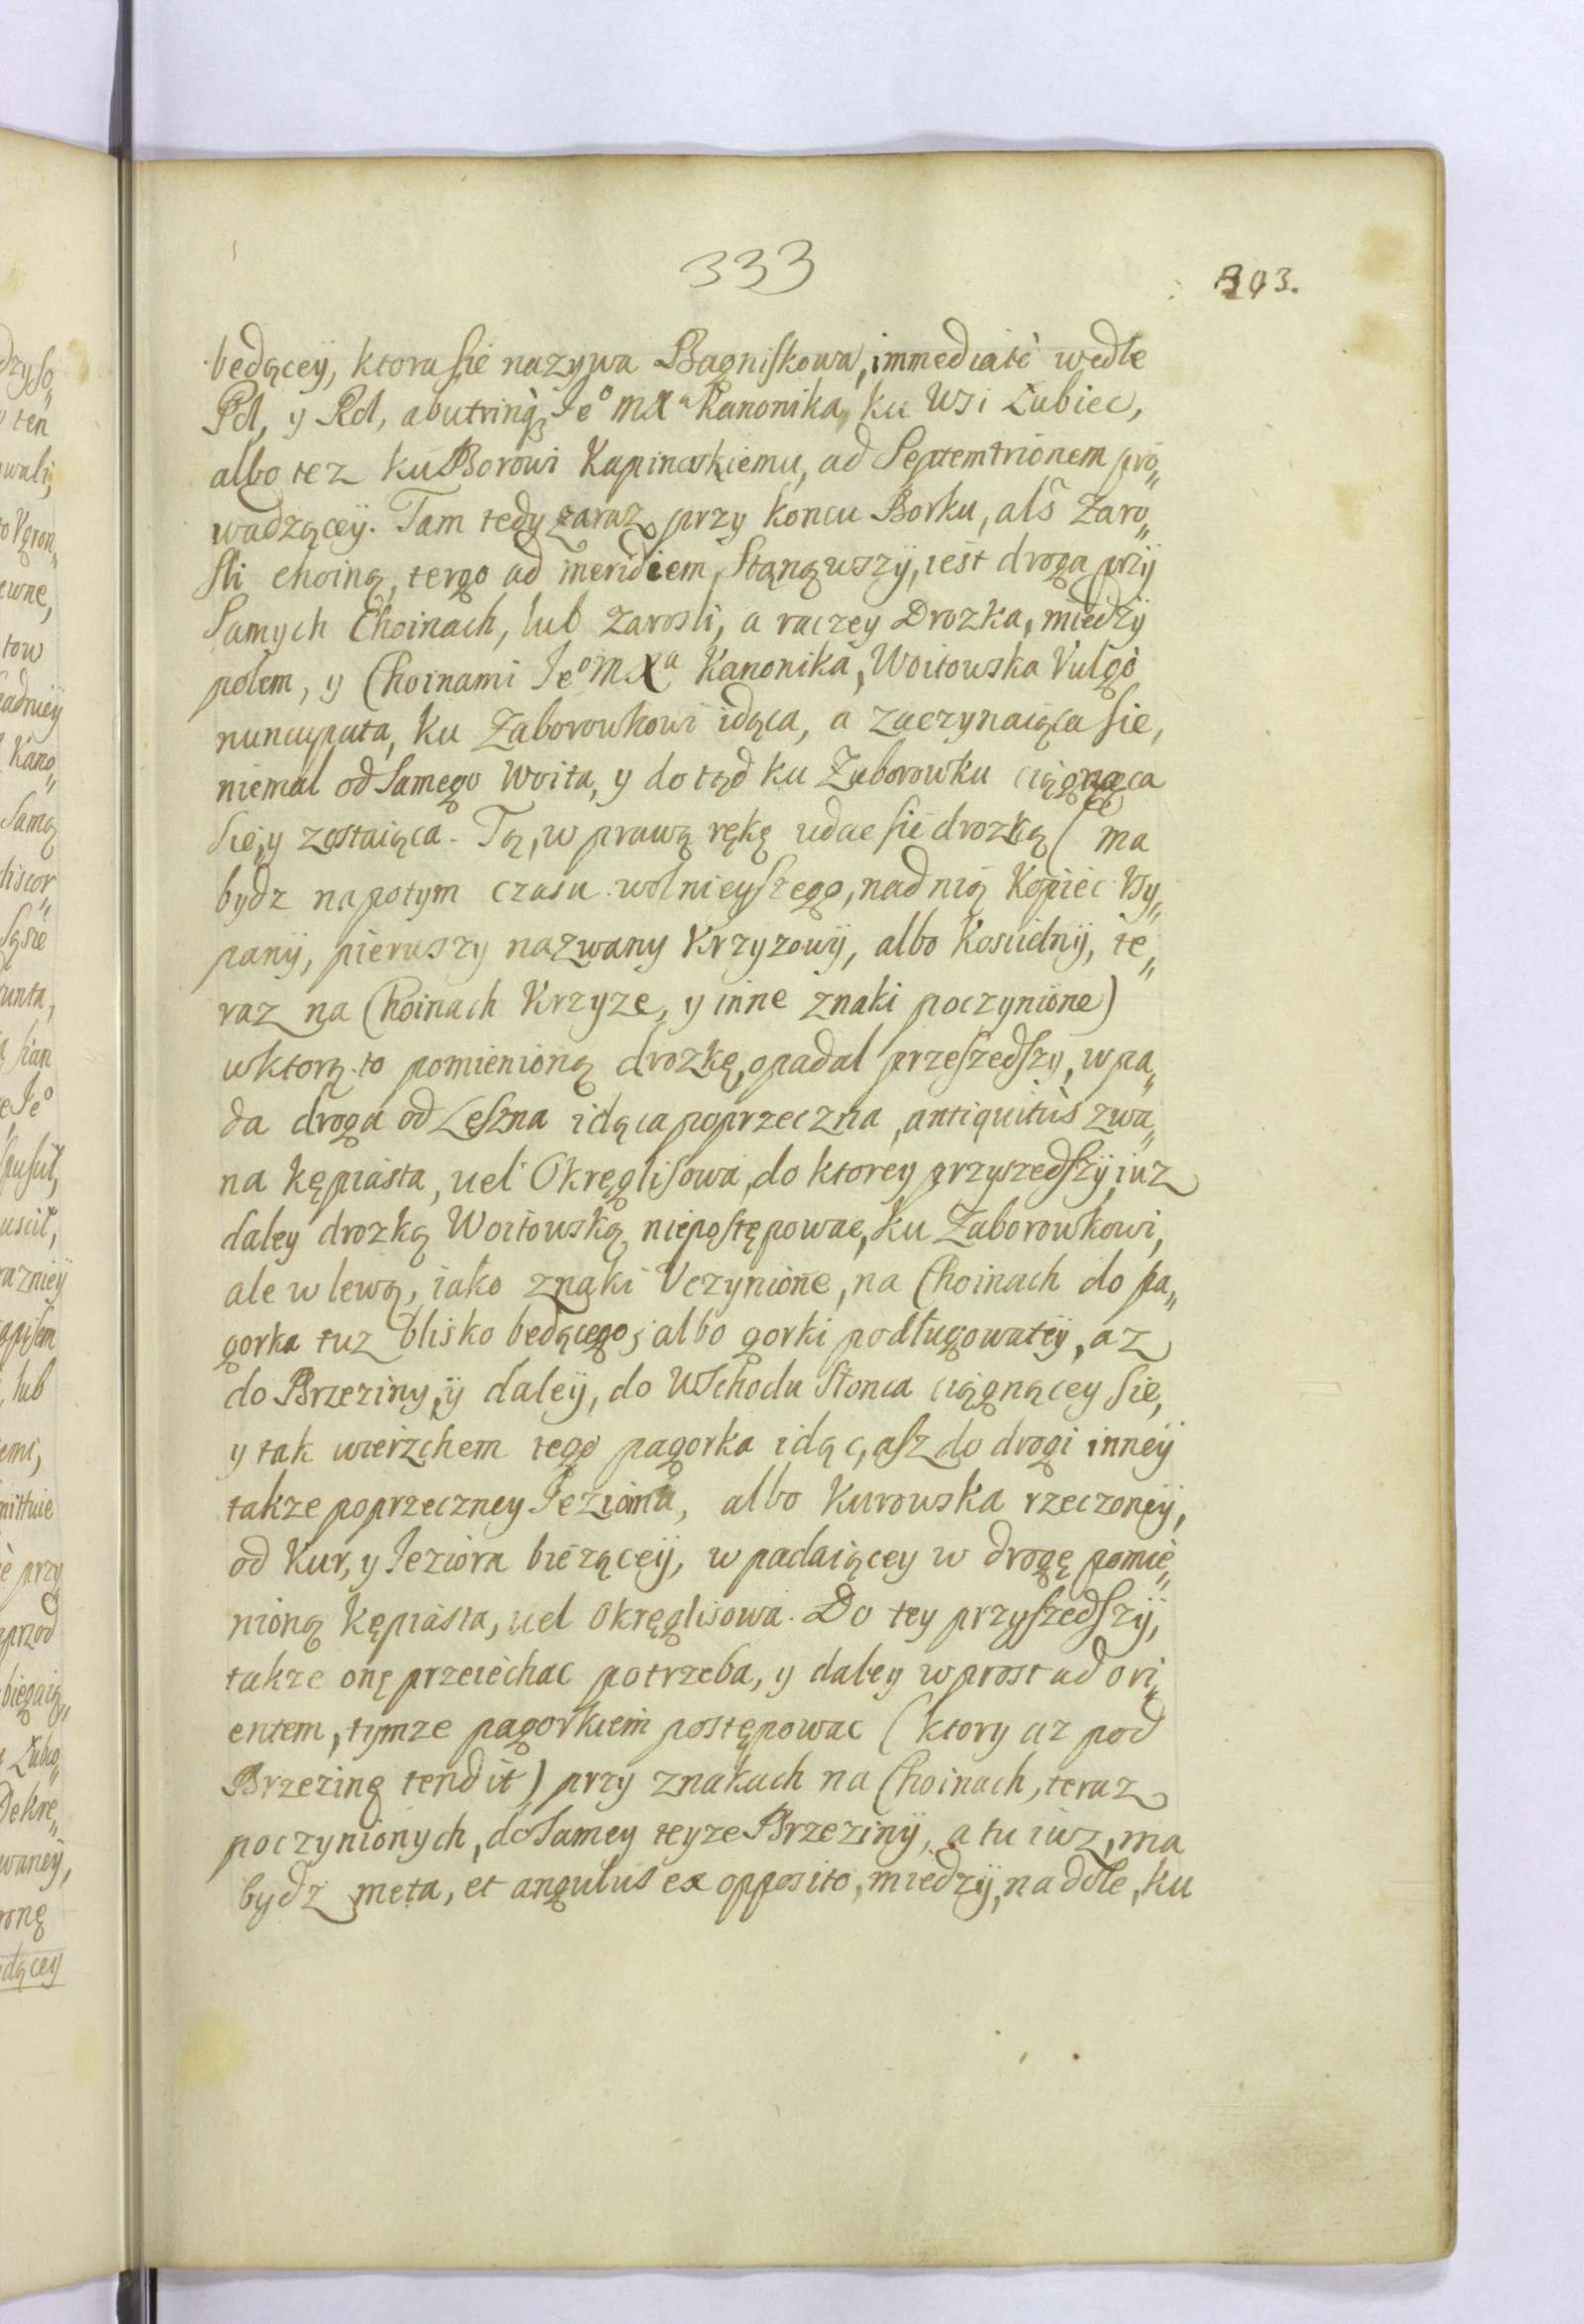 333
393.
będącey, ktora sie nazywa Bagniskowa, immediatè wedle
Pol, y Rol, abutrinq3 Jeo mXa Kanonika, ku Wsi Łubiec,
albo tez ku Borowi Kapinoskiemu, ad Septemtrionem pro„
wadzącey. Tam tedy zaraz przy koncu Borku, als Zaro„
sli choiną, tergo ad meridiem, Stanąwszy, iest droga przy
Samych Choinach, lub zarosli, a raczey Drozka, miedzy
polem, y Choinami Jeo m Xa Kanonika, Woitowska Vulgò
nuncupata, ku Zaborowkowi idąca, a zaczynaiąca sie,
niemal od Samego Woita, y dotąd ku Zaborowku ciągnąca
sie, y zostaiąca. Tą, w prawą rękę udac sie drozką (ma
bydz napotym czasu wolnieyszego, nad nią Kopiec Vsy„
pany, pierwszy nazwany Krzyzowy, albo Koscielny, te„
raz na Choinach Krzyze, y inne znaki poczynione)
w ktorą to pomienioną drozkę, opadal przeszedszy, wpa„
da droga od Leszna idąca poprzeczna, antiquitùs zwa„
na kępiasta, uel Okręglisowa, do ktorey przyszedszy iuz
daley drozką Woitowską niepostępowac, ku Zaborowkowi,
ale w lewą, iako znaki Vczynione, na Choinach do pa„
gorka tuz blisko będącego, albo gorki podługowatey, az
do Brzeziny, y daley, do Wschodu Słonca ciągnącey sie,
y tak wierzchem tego pagorka idąc, asz do drogi inney
takze poprzeczney Jeziorna, albo Kurowska rzeczoney,
od Kur, y Jeziora biezącey, wpadaiącey w drogę pomie„
nioną Kępiasta, uel Okręglisowa. Do tey przyszedszy,
takze onę przeiechac potrzeba, y daley wprost ad ori„
entem, tymze pagorkiem postępowac (ktory az pod
Brzezinę tendit) przy znakach na Choinach, teraz
poczynionych, do Samey teyze Brzeziny, a tu iusz, ma
bydz meta, et angulus ex opposito, miedzy, na dole, ku